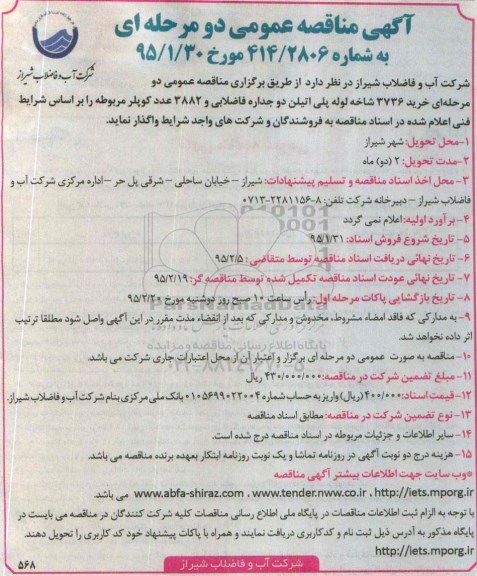 آگهی مناقصه عمومی دو مرحله ای
به شماره ۴۱۴/۲۸۰۶ مورخ ۹۵/۱/۳۰
شرکت آب و فاضلاب شیراز
شرکت آب و فاضلاب شیراز در نظر دارد از طریق برگزاری مناقصه عمومی دو
مرحله‌ای خرید ۳۷۳۶ شاخه لوله پلی اتیلن دو جداره فاضلابی و ۳۸۸۲ عدد کوپلر مربوطه را بر اساس شرایط
فنی اعلام شده در اسناد مناقصه به فروشندگان و شرکت های واجد شرایط واگذار نماید.
۱-محل تحویل: شهر شیراز
۲-مدت تحویل: ۲ (دو) ماه
۳- محل اخذ اسناد مناقصه و تسلیم پیشنهادات: شیراز – خیابان ساحلی – شرقی پل حر –اداره مرکزی شرکت آب و
فاضلاب شیراز – دبیرخانه شرکت تلفن: ۸-۲۲۸۱۱۵۶-۰۷۱۳
۴- برآورد اولیه: اعلام نمی گردد
۵- تاریخ شروع فروش اسناد: ۹۵/۱/۳۱
۶- تاریخ نهائی دریافت اسناد مناقصه توسط متقاضی: ۹۵/۲/۵
۷- تاریخ نهائی عودت اسناد مناقصه تکمیل شده توسط مناقصه گر: ۹۵/۲/۱۹
۸- تاریخ بازگشایی پاکات مرحله اول: رأس ساعت ۱۰ صبح روز دوشنبه مورخ ۹۵/۲/۲۰
۹- به مدارکی که فاقد امضاء مشروط، مخدوش و مدارکی که بعد از انقضاء مدت مقرر در این آگهی واصل شود مطلقا ترتیب
اثر داده نخواهد شد.
۱۰- مناقصه به صورت عمومی دو مرحله ای برگزار و اعتبار آن از محل اعتبارات جاری شرکت می باشد.
۱۱- مبلغ تضمین شرکت در مناقصه: ۴۳۰/۰۰۰/۰۰۰ ریال
۱۲- قیمت اسناد: ۴۰۰/۰۰۰ (ریال) واریز به حساب شماره ۰۱۰۵۶۹۹۰۲۲۰۰۴ بانک ملی مرکزی بنام شرکت آب و فاضلاب شیراز.
۱۳- نوع تضمین شرکت در مناقصه: مطابق اسناد مناقصه
۱۴- سایر اطلاعات و جزئیات مربوطه در اسناد مناقصه درج شده است.
۱۵- هزینه درج دو نوبت آگهی در روزنامه تماشا و یک نوبت روزنامه ابتکار بعهده برنده مناقصه می باشد.
*وب سایت جهت اطلاعات بیشتر آگهی مناقصه
www.abfa-shiraz.com ، www.tender.nww.co.ir ، http://iets.mporg.ir می باشد.
با توجه به الزام ثبت اطلاعات مناقصات در پایگاه ملی اطلاع رسانی مناقصات کلیه شرکت کنندگان در مناقصه می بایست در
پایگاه مذکور به آدرس ذیل ثبت نام و کدکاربری دریافت نمایند و همراه با پاکات پیشنهاد خود کد کاربری را تحویل دهند.
http://iets.mporg.ir
شرکت آب و فاضلاب شیراز
۵۶۸